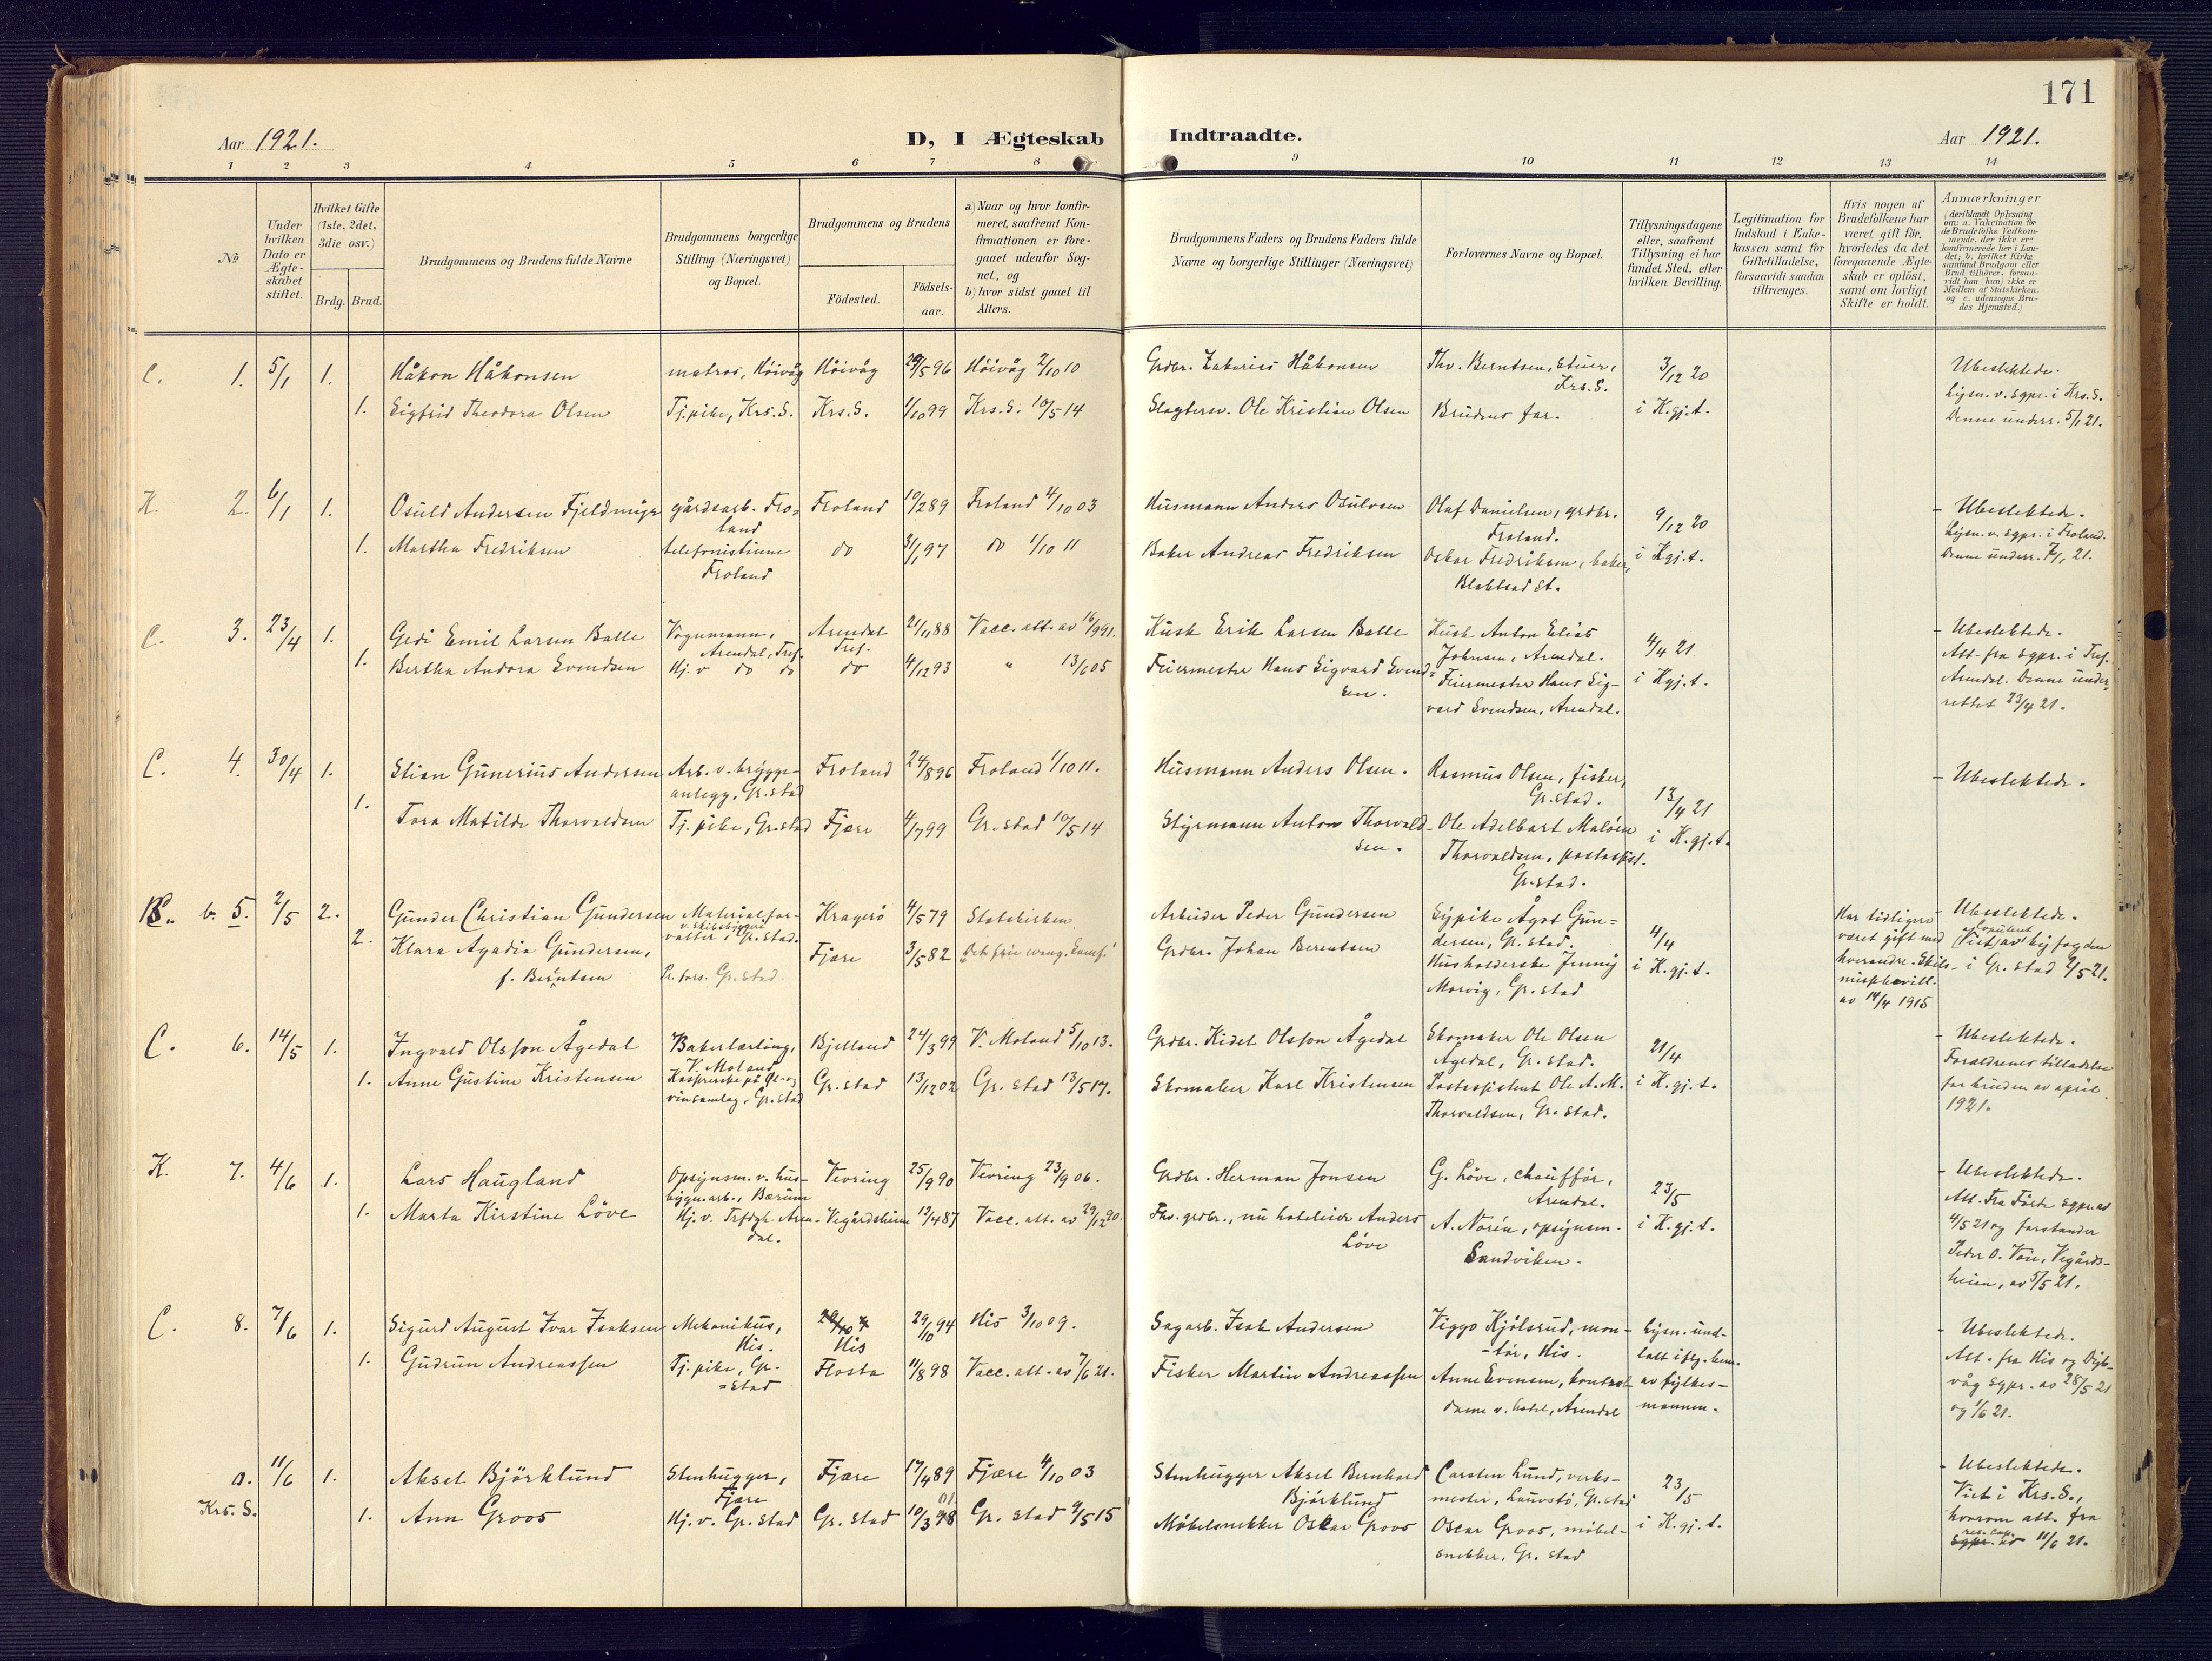 171
Aar 1921.
D, I Ægteskab Indtraadte.
Aar 1921.
1 2 3 4 5 6 7 8 9 10 11 12 13 14
No
Under hvilken Dato er Ægteskabet stiftet.
Hvilket Gifte (1ste, 2det, 3die osv.)
Brdg. Brud.
Brudgommens og Brudens fulde Navne
Brudgommens borgerlige Stilling (Næringsvei) og Bopæl.
Brudgommens og Brudens
Födested.
Födselsaar.
a) Naar og hvor konfirmeret, saafremt Konfirmationen er foregaaet udenfor Sognet, og
b) hvor sidst gaaet til Alters.
Brudgommens Faders og Brudens Faders fulde Navne og borgerlige Stillinger (Næringsvei)
Forlovernes Navne og Bopæl.
Tillysningsdagene eller, saafremt Tillysning ei har fundet Sted, efter hvilken Bevilling.
Legitimation for Indskud i Enkekassen samt for Giftetilladelse, forsaavidt saadan tiltrænges.
Hvis nogen af Brudefolkene har været gift för, hvorledes da det foregaaende Ægteskab er oplöst, samt om lovligt Skifte er holdt.
Anmærkninger
(deriblandt Oplysning om: a. Vakcination for de Brudefolks Vedkommende, der ikke er konfirmerede her i Landet; b. hvilket Kirkesamfund Brudgom eller Brud tilhörer, forsaavidt han (hun) ikke er Medlem af Statskirken. og c. udensogns Brudes Hjemsted.)
C. 1. 5/1 1. Håkon Håkonsen matros, Höivåg Höivåg 29/5 96 Höivåg 2/10 10 Grdbr. Zakarias Håkonsen Thv. Berntsen, stuer, Krs.S. 3/12 20 Ubeslektede.
1. Sigfrid Theodora Olsen Tj.pike, Krs.S. Krs.S. 1/10 99 Krs.S. 10/5 14 Slagtersv. Ole Kristian Olsen Brudens far. i K.gj.t. Lysn. v. sgpr. i Krs.S.
Denne underr. 5/1 21.
K. 2. 6/1 1. Osuld Andersen Fjeldmyr gårdsarb. Froland Froland 10/2 89 Froland 4/10 03 Husmann Anders Osulvsen Olaf Danielsen, grdbr. Froland. 9/12 20 Ubeslektede.
1. Martha Fredriksen telefonistinne Froland do 31/1 97 do 1/10 11 Baker Andreas Fredriksen Oskar Fredriksen, baker, Blakstad St. i K.gj.t. Lysn. v. sgpr. i Froland.
Denne underr. 7/1 21.
C. 3. 23/4 1. Gedi Emil Larsen Balle Vognmann, Arendal, Tref. Arendal Tref. 21/11 88 Vacc. att. av 16/9 91. Kusk Erik Larsen Balle Kusk Anton Elias Johnsen, Arendal. 4/4 21 Ubeslektede.
1. Bertha Andora Svendsen Hj. v do do do 4/12 93 " 13/6 05 Feiermester Hans Sigvard Svendsen. Feiermester Hans Sigvard Svendsen, Arendal. i K.gj.t. Att. fra sgpr. i Tref.
Arendal. Denne underrettet 23/4 21.
C. 4. 30/4 1. Stian Gunerius Andersen Arb. v. bryggeanlegg, Gr.stad Froland 24/8 96 Froland 1/10 11. Husmann Anders Olsen. Rasmus Olsen, fisker, Gr.stad. 13/4 21 Ubeslektede.
1. Tora Matilde Thorvaldsen Tj.pike, Gr.stad Fjære 4/7 99 Gr.stad 10/5 14 Styrmann Anton Thorvaldsen. Ole Adelbart Malöen Thorvaldsen, postassist. Gr.stad. i K.gj.t.
b. 5. 2/5 2. Gunder Christian Gundersen Materialforvalter v. skibsbyggeri i Gr.stad. Kragerö 4/5 79 Statskirken Arbeider Peder Gundersen Sypike Ågot Gundersen, Gr.stad. 4/4 Har tidligere været gift med hverandre. Skilsmissebevill. av 14/4 1915 Ubeslektede.
2. Klara Agadia Gundersen, f. Berntsen Pr. fors. Gr.stad. Fjære 3/5 82 Det frie evang. samf. Grdbr. Johan Berentsen Husholderske Jenny Morvig, Gr.stad i K.gj.t. Copuleret av byfogden i Gr.stad 2/5 21.
C. 6. 14/5 1. Ingvald Olsson Ågedal Bakerlærling, V. Moland Bjelland 24/3 99 V. Moland 5/10 13. Grdbr. Kidel Olsson Ågedal Skomaker Ole Olsen Ågedal, Gr.stad. 21/4 Ubeslektede.
1. Anne Gustine Kristensen Kasserske på Öl- og vinsamlag, Gr.stad Gr.stad 13/12 02 Gr.stad 13/5 17. Skomaker Karl Kristensen Postassistent Ole A. M. Thorvaldsen, Gr.stad. i K.gj.t. Forældrenes tilladelse for bruden av april 1921.
K. 7. 4/6 1. Lars Haugland Opsynsm. v. husbygn.arb., Bærum Vevring 25/9 90 Vevring 23/9 06. Grdbr. Herman Jonsen G. Löve, chaufför, Arendal. 23/5 Ubeslektede.
1. Marta Kirstine Löve Hj. v. Trfdgh. Arendal. Vegårdsheien 12/4 87 Vacc. att. av 29/12 90. Fhv. grdbr., nu hoteleier Anders Löve A. Norén, opsynsm. Sandviken. i K.gj.t. Att. fra Förde sgpr. av 4/5 21 og forstander Peder O. Voie, Vegårdsheien, av 5/5 21.
C. 8. 7/6 1. Sigurd August Ivar Isaksen Mekanikus, His. His 29/10 94 His 3/10 09. Sagarb. Isak Andersen Viggo Kjölsrud, montör, His. Lysn. undlatt iflg. bem. av fylkesmannen. Ubeslektede.
1. Gudrun Andreassen Tj.pike, Gr.stad Flosta 11/8 98 Vacc. att. av 7/6 21. Fisker Martin Andreassen Anne Evensen, kontordame v. hotel, Arendal Att. fra His og Dybvåg sgpr. av 28/5 21 og 1/6 21.
a. 11/6 1. Aksel Björklund Stenhugger, Fjære Fjære 17/4 89 Fjære 4/10 03 Stenhugger Aksel Bernhard Björklund Carsten Lund, verksmester, Lauvstö, Gr.stad 23/5 Ubeslektede.
Krs. S. 1. Ann Groos Hj. v. Gr.stad Gr.stad 10/3 01 Gr.stad 9/5 15 Möbelsnekker Oskar Groos Oscar Groos, möbelsnekker, Gr.stad i K.gj.t. Viet i Krs.S., hvorom att. fra res. cap. 11/6 21.